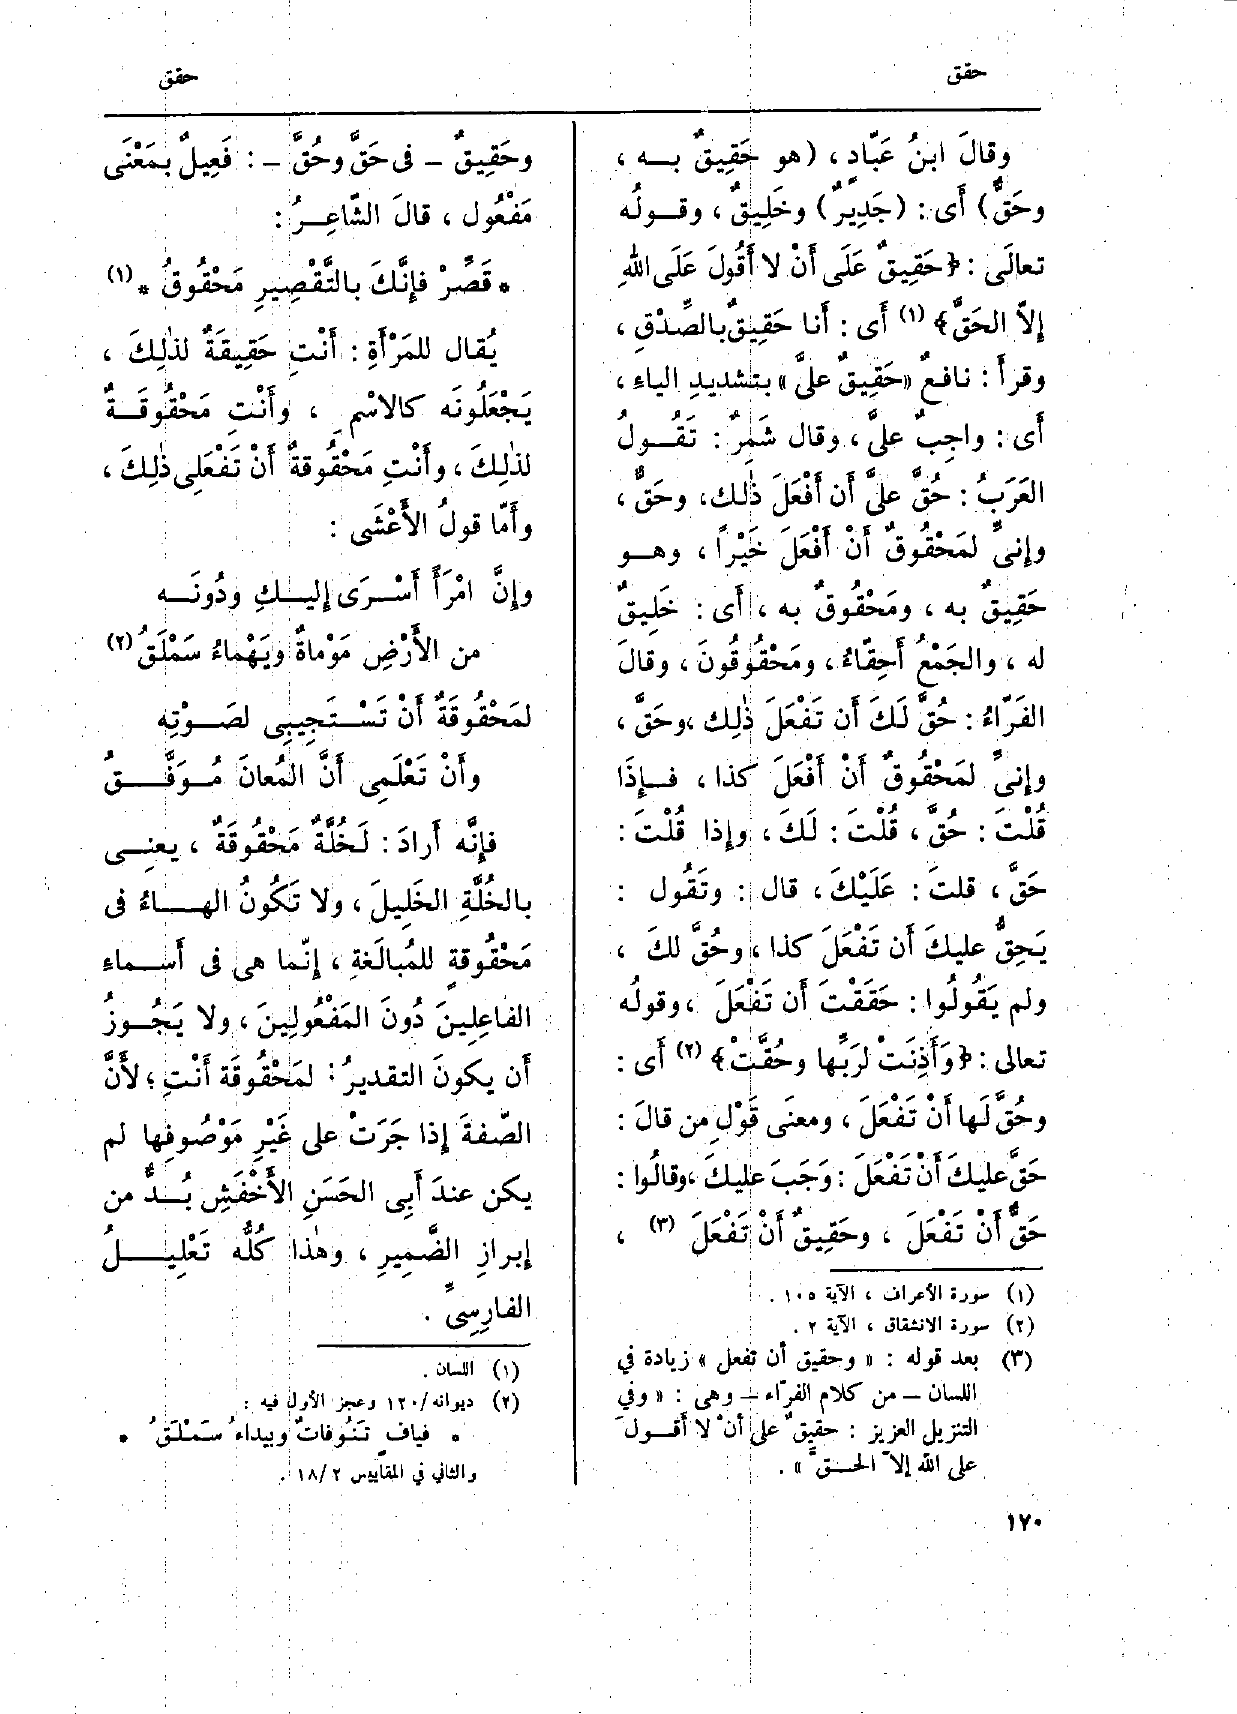 حقق
حقق
وقالَ ابنُ عَبّادٍ ، (هو حَقِيقٌ بـــه ،
وحَقٌّ) أى : (جَدِيرٌ) وخَلِيقٌ ، وقــولُه
تعالَى : ﴿حَقِيقٌ عَلَى أَنْ لا أَقُولَ عَلَى اللهِ
إلاّ الحَقَّ﴾ (١) أى : أنا حَقِيقٌ بالصِّدْقِ ،
وقرأَ : نافعٌ «حَقِيقٌ علىَّ» بتشديدِ الياء ،
أى : واجِبٌ علىَّ ، وقال شَمِرٌ : تَقُــولُ
العَرَبُ : حُقَّ علىَّ أن أَفْعَلَ ذٰلك ، وحَقَّ ،
وإنىِّ لمَحْقُوقٌ أَنْ أَفْعَلَ خَيْرًا ، وهــو
حَقِيقٌ به ، ومَحْقُوقٌ به ، أى : خَلِيقٌ
له ، والجَمْعُ أَحِقّاءُ ، ومَحْقُوقُونَ ، وقالَ
الفَرّاءُ : حُقَّ لَكَ أن تَفْعَلَ ذٰلِك ، وحَقَّ ،
وإنىِّ لمَحْقُوقٌ أَنْ أَفْعَلَ كذا ، فــإِذَا
قُلْتَ : حُقَّ ، قُلْتَ : لَكَ ، وإذا قُلْتَ :
حَقَّ ، قلتَ : عَلَيْكَ ، قال : وتَقُول :
يَحِقُّ عليكَ أن تَفْعَلَ كذا ، وحُقَّ لكَ ،
ولم يَقُولُوا : حَقَقْتَ أن تَفْعَلَ ، وقولُه
تعالى : ﴿وَأَذِنَتْ لرَبِّها وحُقَّتْ﴾ (٢) أى :
وحُقَّ لَها أَنْ تَفْعَلَ ، ومعنَى قَوْلِ من قالَ :
حَقَّ عليكَ أَنْ تَفْعَلَ : وَجَبَ عليكَ ، وقالُوا :
حَقٌّ أَنْ تَفْعَلَ ، وحَقِيقٌ أَنْ تَفْعَلَ (٣) ،
(١) سورة الأعراف ، الآية ١٠٥ .
(٢) سورة الانشقاق ، الآية ٢ .
(٣) بعد قوله : « وحقيق أن تفعل » زيادة في
اللسان – من كلام الفرّاء – وهى : « وفي
التنزيل العزيز : حقيقٌ على أنْ لا أقــولَ
على الله إلاّ الحــقَّ » .
١٧٠
وحَقِيقٌ – فى حَقَّ وحُقَّ – : فَعِيلٌ بمَعْنَى
مَفْعُول ، قالَ الشّاعِــرُ :
* قَصِّرْ فإنَّكَ بالتَّقْصِيرِ مَحْقُوقُ * (١)
يُقال للمَرْأَةِ : أَنْتِ حَقِيقَةٌ لذٰلِكَ ،
يَجْعَلُونَه كالاسْمِ ، وأَنْتِ مَحْقُوقَــةٌ
لذٰلِكَ ، وأَنْتِ مَحْقُوقةٌ أَنْ تَفْعَلِى ذٰلِكَ ،
وأَمّا قولُ الأَعْشَى :
وإنَّ امْرَأً أَسْــرَى إليــكِ ودُونَــه
من الأَرْضِ مَوْماةٌ ويَهْماءُ سَمْلَقُ (٢)
لمَحْقُوقَةٌ أَنْ تَسْــتَجِيبِى لصَــوْتِه
وأَنْ تَعْلَمِى أَنَّ المُعانَ مُــوَفَّــقُ
فإنَّه أرادَ : لَخُلَّةٌ مَحْقُوقَةٌ ، يعنِــى
بالخُلَّةِ الخَلِيلَ ، ولا تَكُونُ الهــاءُ فى
مَحْقُوقةٍ للمُبالَغةِ ، إنّما هى فى أَســماءِ
الفاعِلِينَ دُونَ المَفْعُولِينَ ، ولا يَجُــوزُ
أن يكونَ التقديرُ : لمَحْقُوقَة أَنْتِ ؛ لأَنَّ
الصِّفةَ إذا جَرَتْ على غَيْرِ مَوْصُوفِها لم
يكن عندَ أبِى الحَسَنِ الأَخْفَشِ بُــدٌّ من
إبرازِ الضَّمِيرِ ، وهٰذا كُلُّه تَعْلِيــلُ
الفارِسِىِّ .
(١) اللسان .
(٢) ديوانه/١٢٠ وعجز الأول فيه :
* فيافٍ تَنُوفاتٌ وبيداءُ سَمْلَقُ *
والثاني في المقاييس ١٨/٢ .